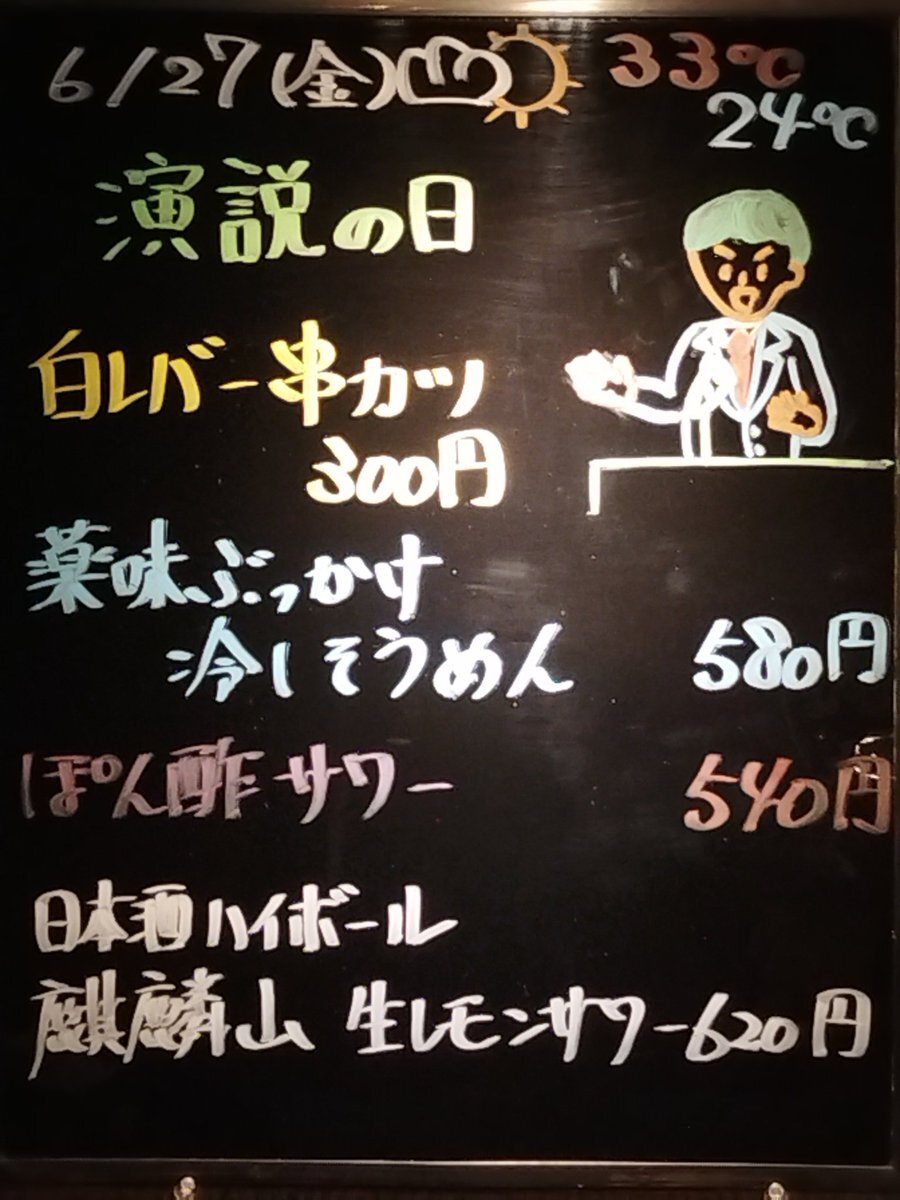 6/27(金) 33℃
24℃
演説の日
白レバー串カツ
300円
薬味ぶっかけ
冷しそうめん 580円
ぽん酢サワー 540円
日本酒ハイボール
麒麟山 生レモンサワー620円